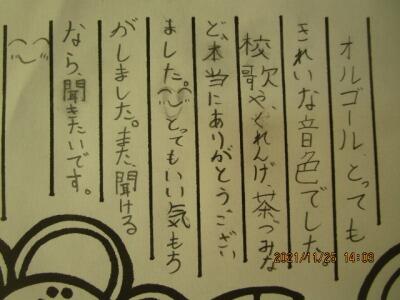 オルゴール、とっても
きれいな音色でした。
校歌や、くれんげ、茶つみな
ど、本当にありがとうござい
ました。とってもいい気もち
がしました。また、聞ける
なら、聞きたいです。
2021/11/25 14:09